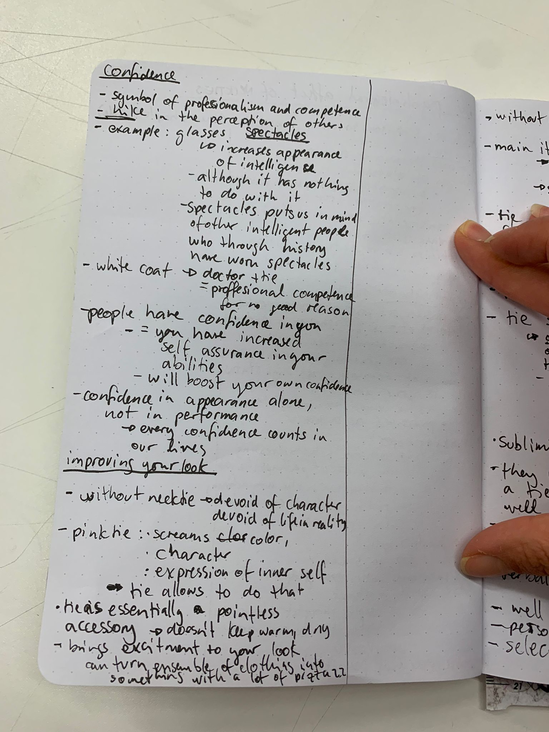 Confidence
- symbol of profesionalism and competence
- nike in the perception of others
- example: glasses spectacles
↳ increases appearance
of intelligence
- although it has nothing
to do with it
- spectacles puts us in mind
of other intelligent people
who through history
have worn spectacles
- white coat → doctor + tie
= proffesional competence
for no good reason
- people have confidence in you
- = you have increased
self assurance in your
abilities
- will boost your own confidence
- confidence in appearance alone,
not in performance
→ every confidence counts in
our lives
improving your look
- without necktie → devoid of character
devoid of life in reality
- pink tie: · screams color,
· character
: expression of inner self
➡ tie allows to do that
· tie is essentially a pointless
accessory → doesn't keep warm, dry
- brings excitment to your look
can turn ensemble of clothing into
something with a lot of pizzazz
→ without
- main it
- tie
- tie
· Sublim
- they
a tie
well
- well
- perso
- selec
21